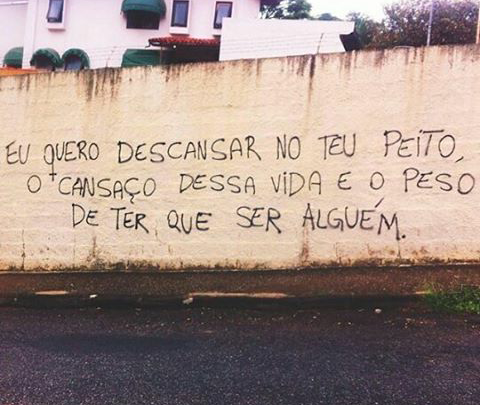 EU QUERO DESCANSAR NO TEU PEITO,
O CANSAÇO DESSA VIDA E O PESO
DE TER QUE SER ALGUÉM.